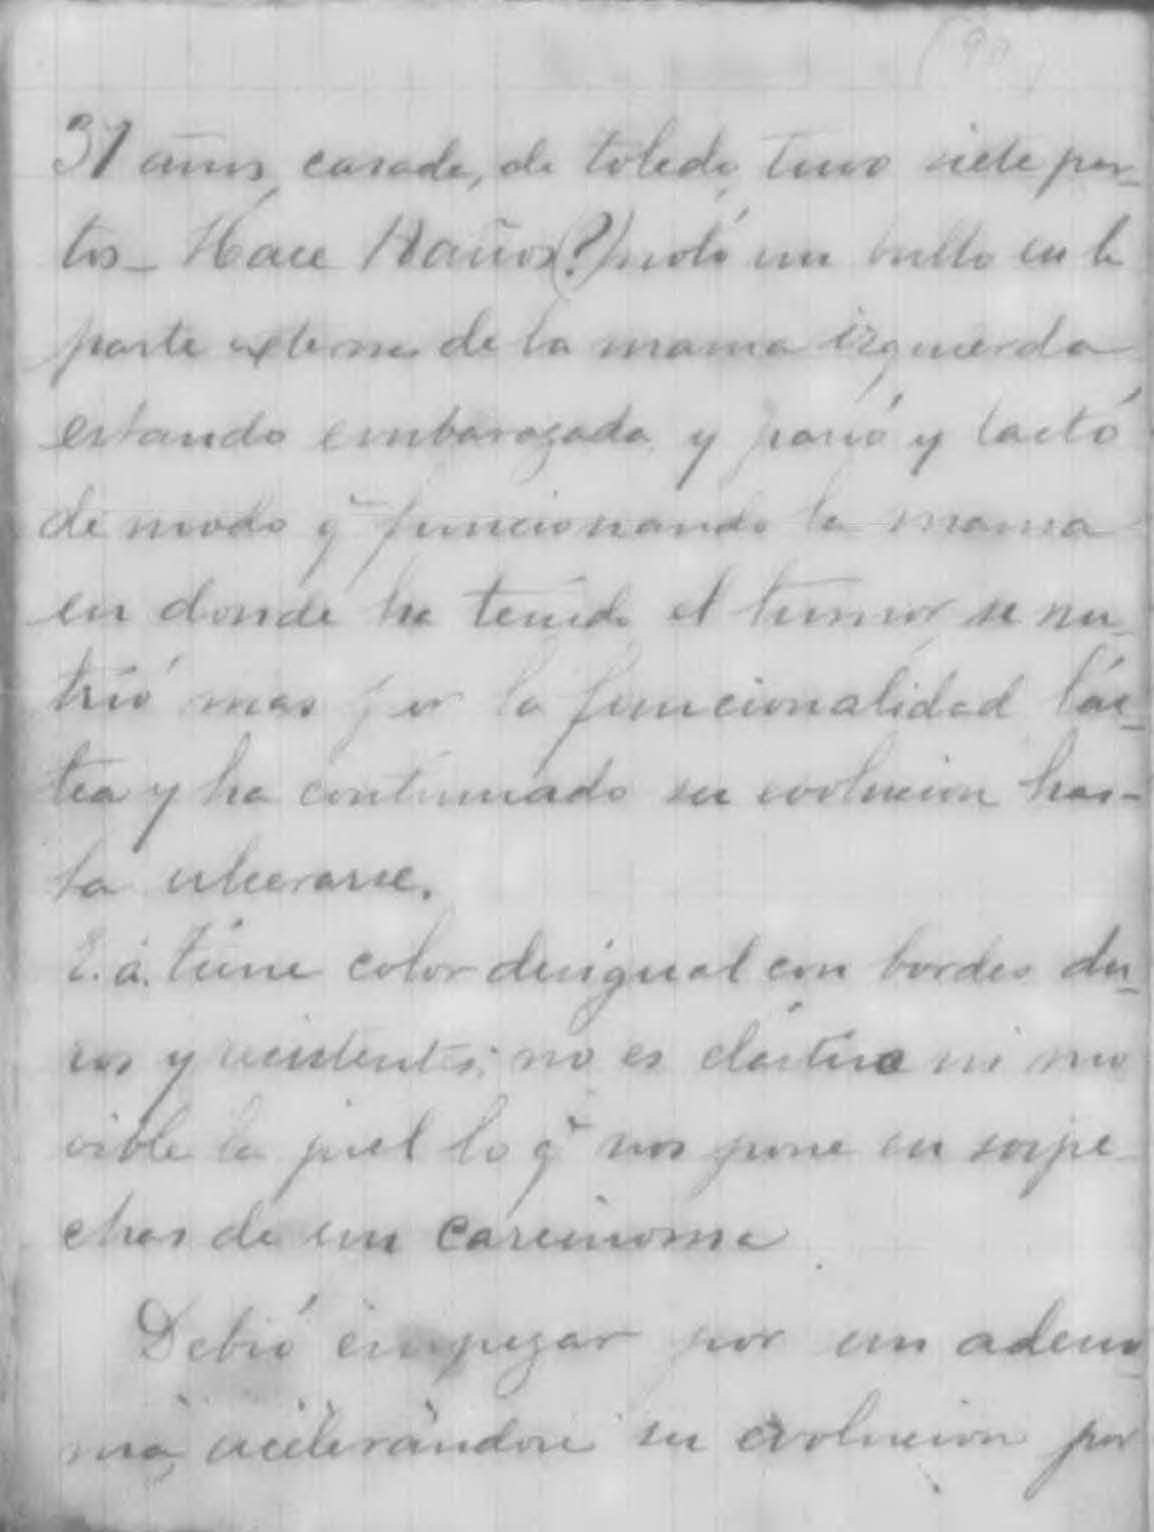 (90)
37 años, casada, de Toledo, tuvo siete par-
tos_ Hace 11 años (?) notó un bulto en la
parte externa de la mama izquierda
estando embarazada y parió y lactó
de modo q̃ funcionando la mama
en donde ha tenido el tumor se nu-
trió mas por la funcionalidad lác-
tea y ha continuado su evolucion has-
ta ulcerarse.
E. a. tiene color desigual con bordes du-
ros y resistentes; no es elástica ni mo
vible la piel lo q̃ nos pone en sospe-
chas de un carcinoma
Debió empezar por un adeno-
ma, acelerándose su evolucion por